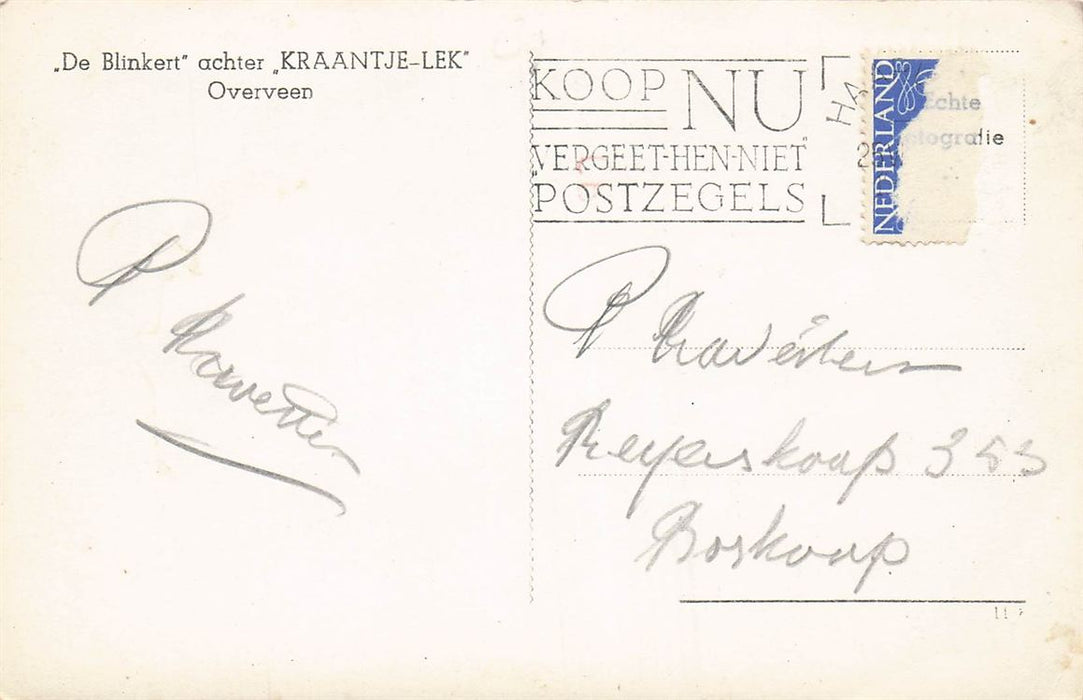 „De Blinkert" achter „KRAANTJE-LEK"
Overveen
KOOP NU
„VERGEET-HEN-NIET"
POSTZEGELS
HA
2
NEDERLAND
Echte
fotografie
P
P
Reyerskoop 353
Boskoop